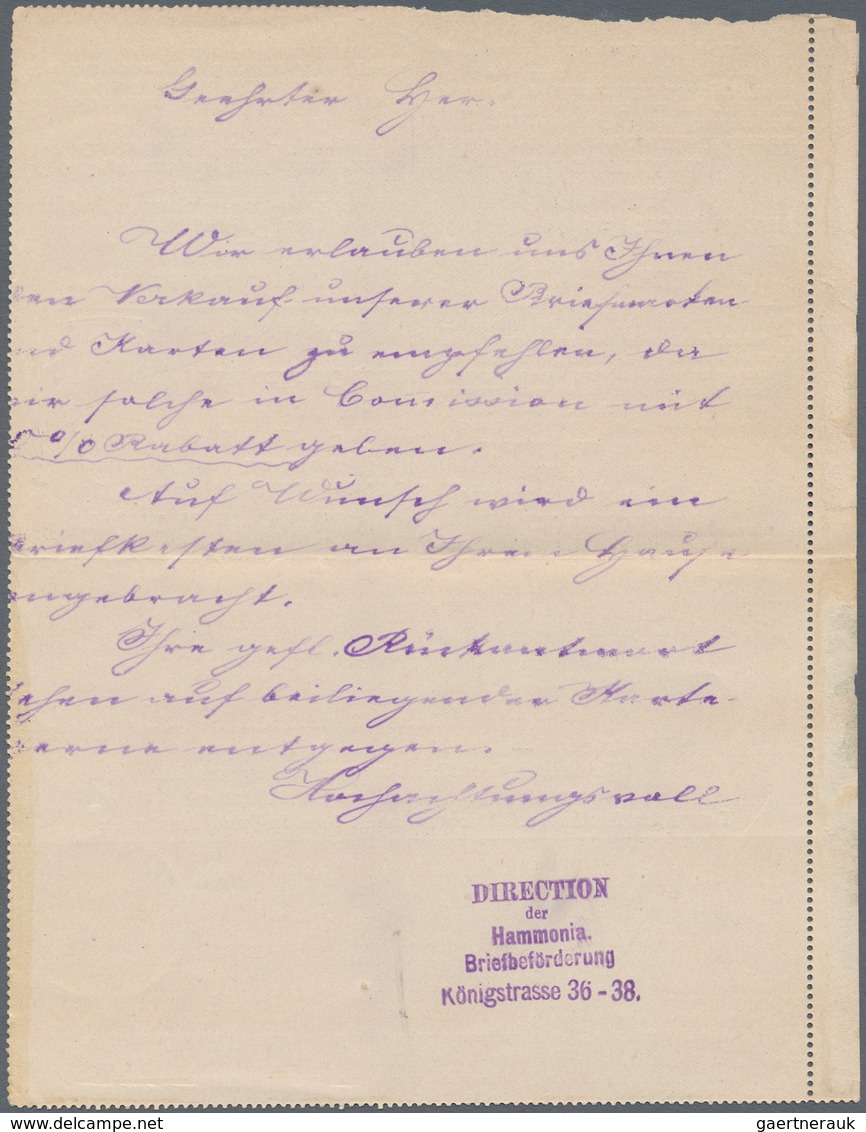 Geehrter Her.
Wir erlauben uns Ihnen
en Verkauf unserer Briefmarken
nd Karten zu empfehlen, da
ir solche in Comission mit
% Rabatt geben.
Auf Wunsch wird ein
riefkasten an Ihrem Hause
ngebracht.
Ihre gefl. Rückantwort
ehen auf beiliegender Karte
erne entgegen.
Hochachtungsvoll
DIRECTION
der
Hammonia.
Briefbeförderung
Königstrasse 36-38.
gaertnerauk